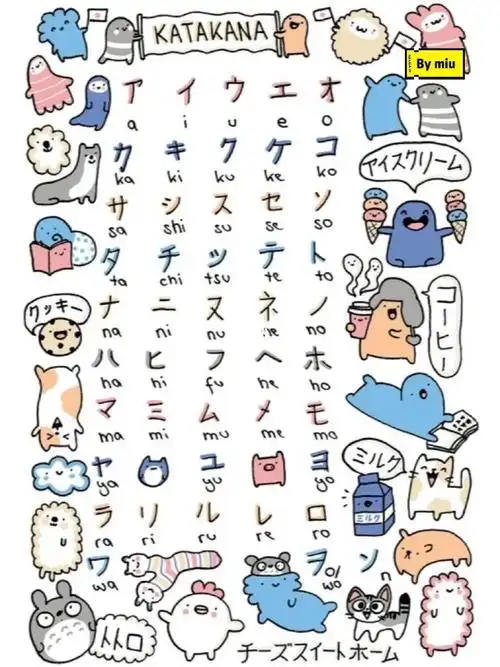 KATAKANA
By miu
ア イ ウ エ オ
a i u e o
カ キ ク ケ コ
ka ki ku ke ko
アイスクリーム
サ シ ス セ ソ
sa shi su se so
タ チ ツ テ ト
ta chi tsu te to
クッキー
ナ ニ ヌ ネ ノ
na ni nu ne no
コーヒー
ハ ヒ フ ヘ ホ
ha hi fu he ho
マ ミ ム メ モ
ma mi mu me mo
ミルク
ヤ ユ ヨ
ya yu yo
ミルク
ラ リ ル レ ロ
ra ri ru re ro
ネコ
ワ ヲ ン
wa o/wo n
トトロ
チーズスイートホーム